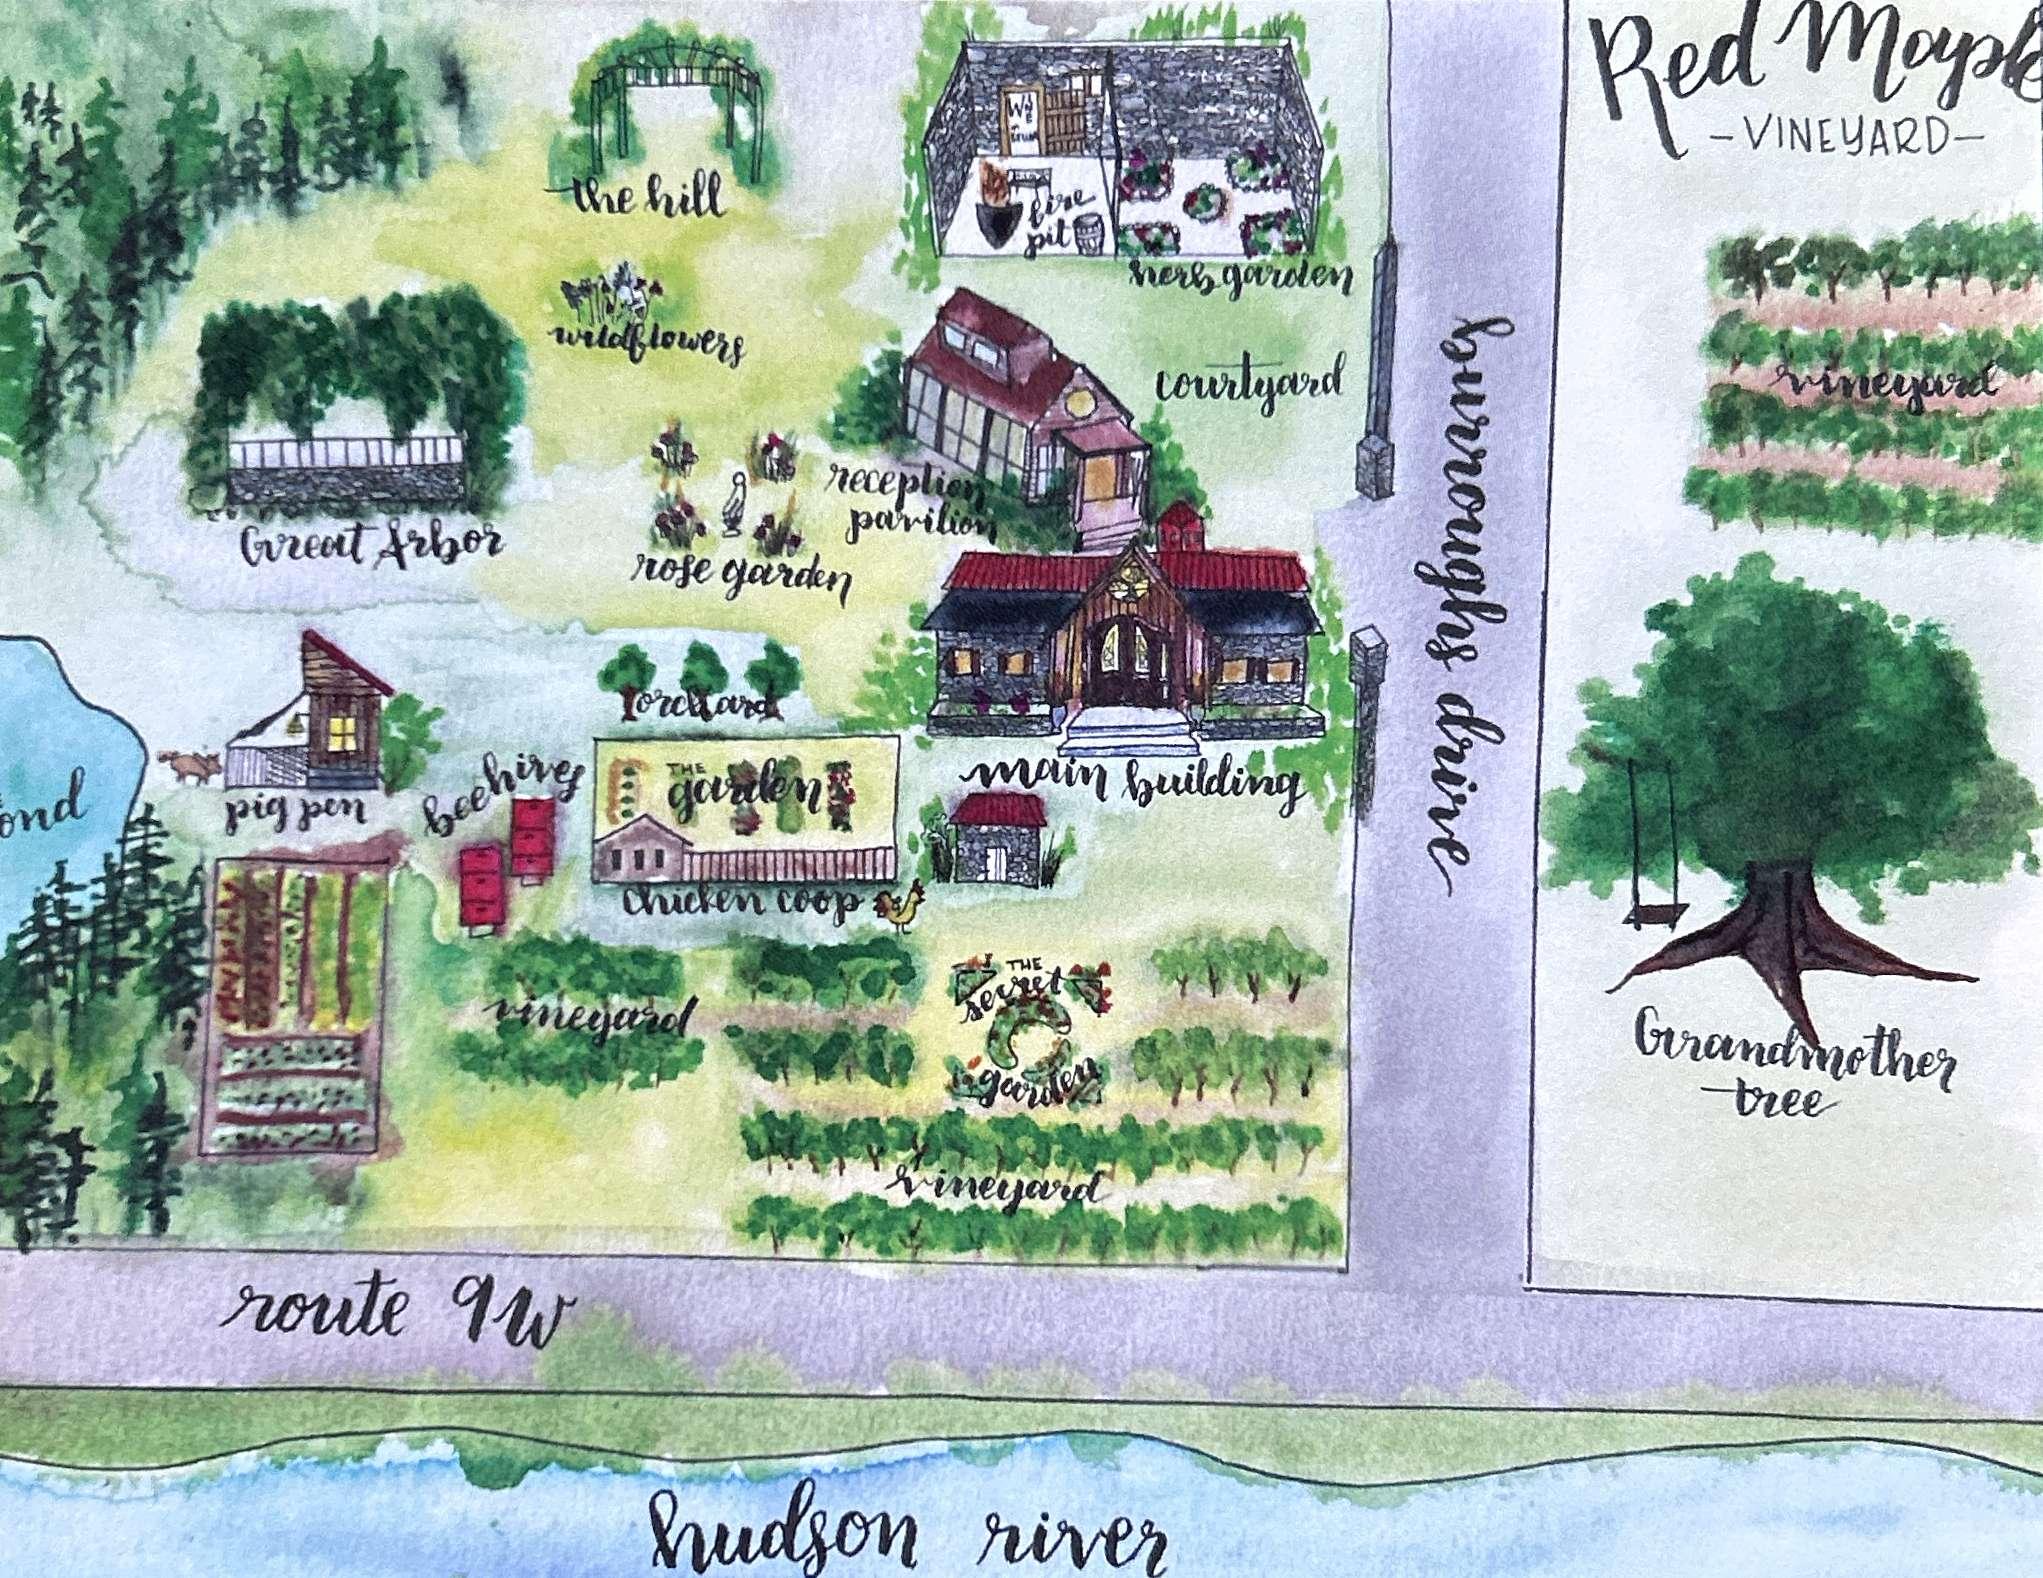 Red Maple
-VINEYARD-
the hill
fire
pit
herb garden
wildflowers
courtyard
vineyard
burroughs drive
reception
pavilion
Great Arbor
rose garden
orchard
main building
pig pen
beehives
THE
garden
chicken coop
THE
secret
garden
vineyard
vineyard
Grandmother
tree
route 9W
hudson river